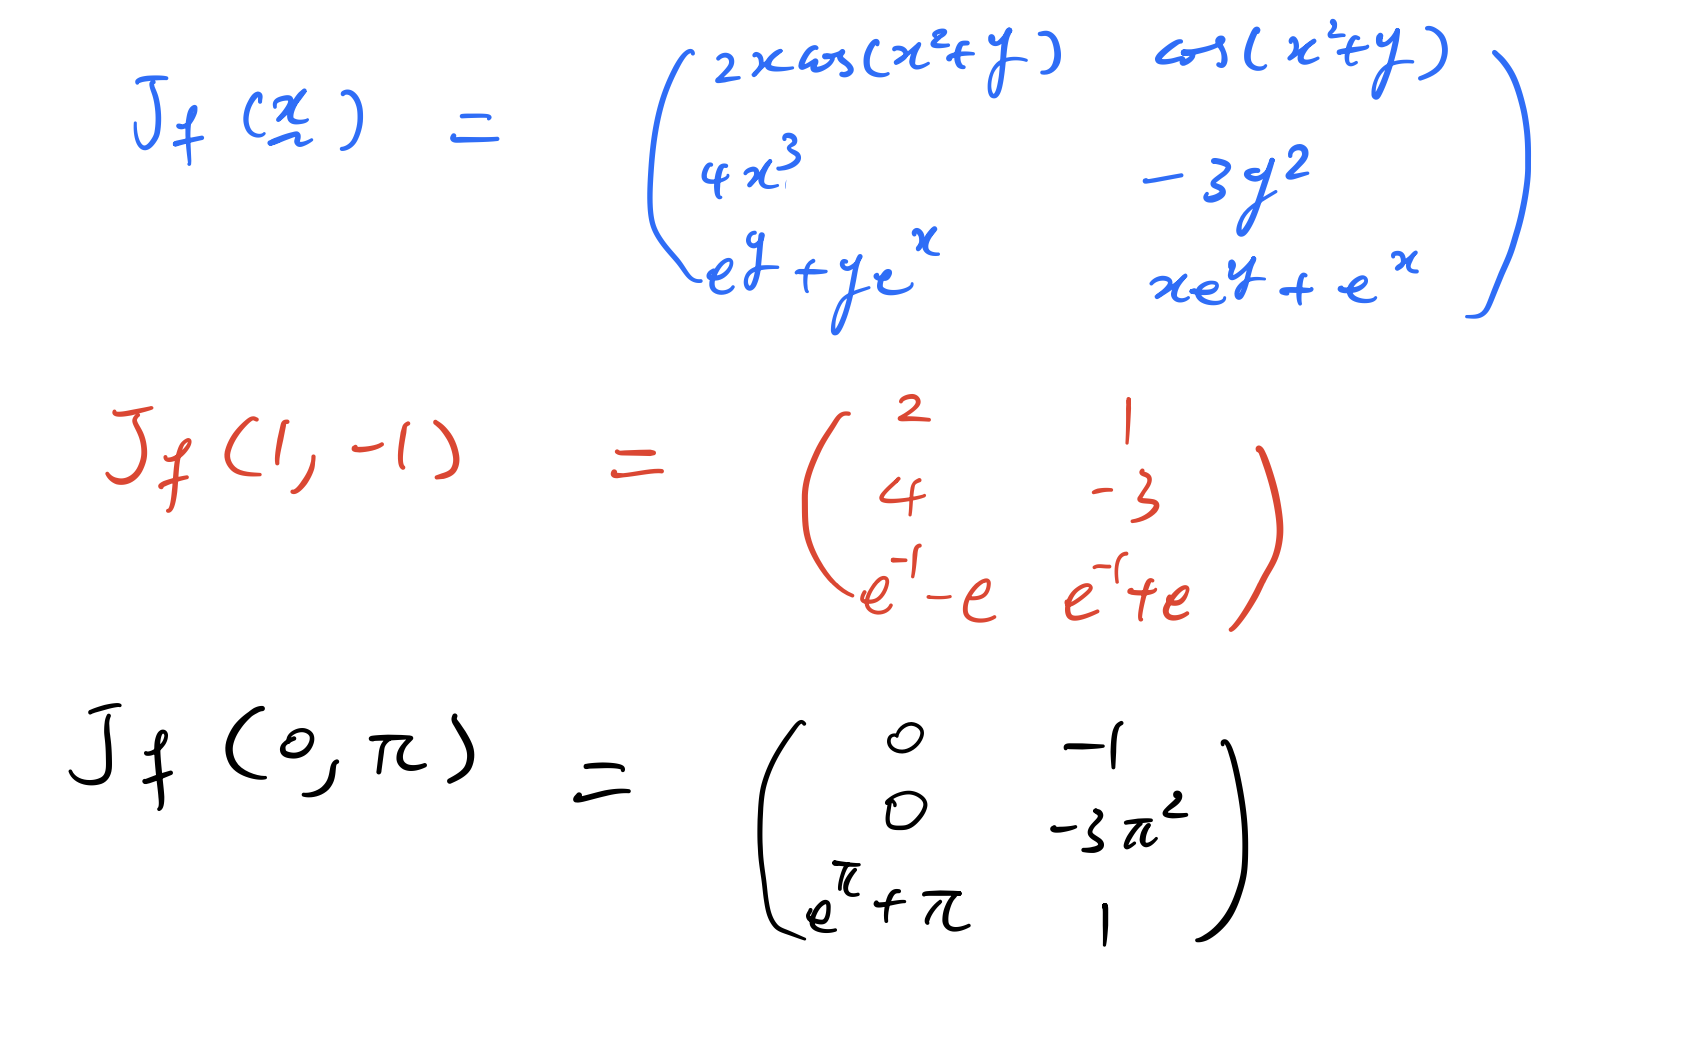 J_f (x) = ( 2x cos(x² + y)   cos(x² + y)
4x³   -3y²
e^y + ye^x   xe^y + e^x )
J_f (1, -1) = ( 2   1
4   -3
e^-1 - e   e^-1 + e )
J_f (0, π) = ( 0   -1
0   -3π²
e^π + π   1 )